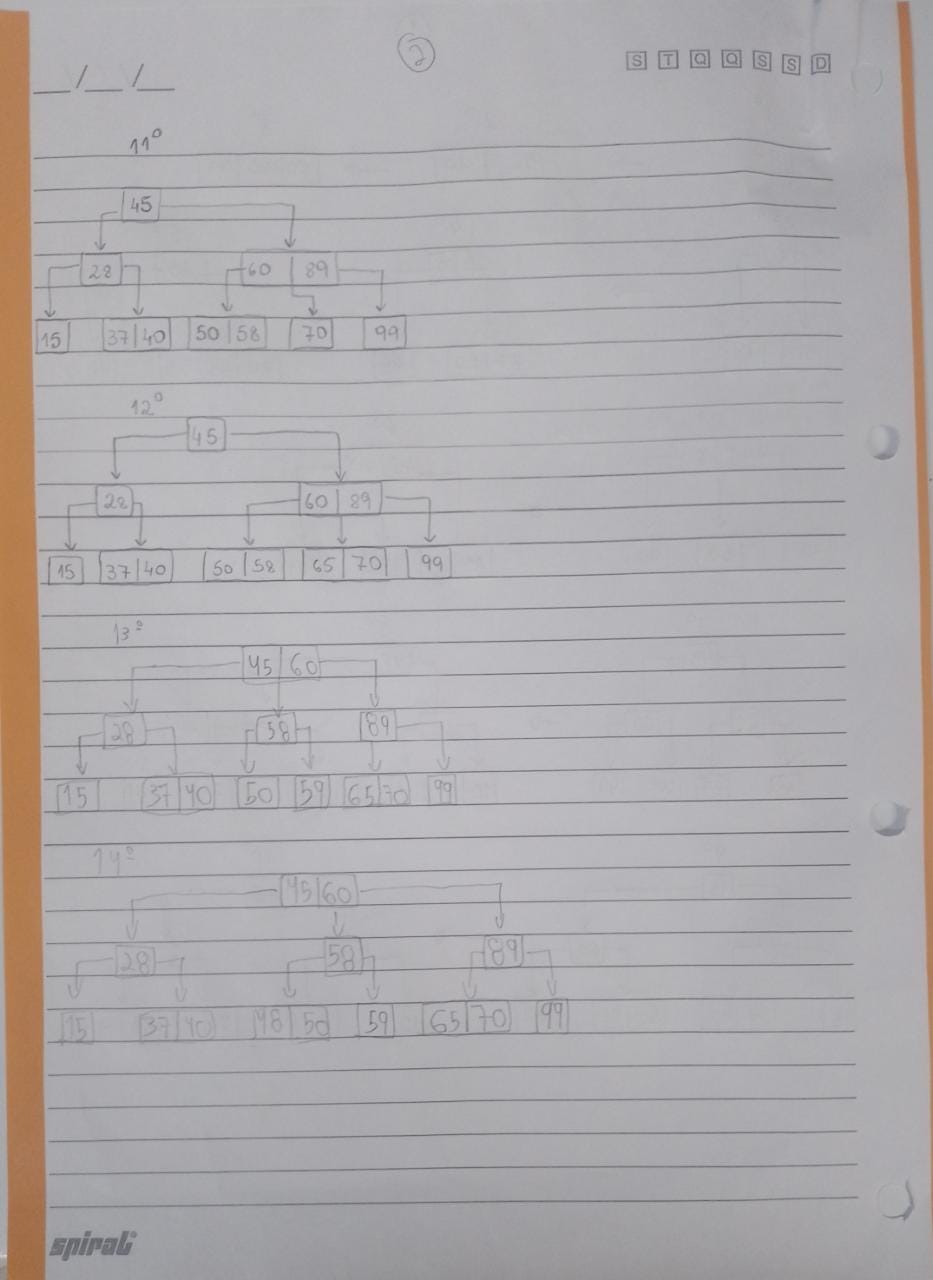 2
__/__/__ S T Q Q S S D
11º
45
28 60 89
15 37 40 50 58 70 99
12º
45
28 60 89
15 37 40 50 58 65 70 99
13º
45 60
28 58 89
15 37 40 50 59 65 70 99
14º
45 60
28 58 89
15 37 40 48 50 59 65 70 99
spiral